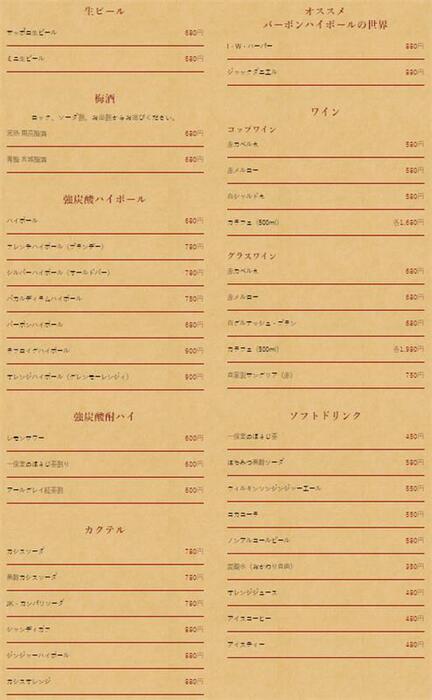 生ビール
サッポロ生ビール 680円
ミニ生ビール 580円
梅酒
ロック、ソーダ割、お湯割からお選びください。
680円
680円
強炭酸ハイボール
ハイボール 680円
フレンチハイボール（ブランデー） 780円
シルバーハイボール（オールドパー） 780円
バカルディラムハイボール 780円
バーボンハイボール 680円
ラフロイグハイボール 900円
オレンジハイボール（グレンモーレンジィ） 900円
強炭酸酎ハイ
レモンサワー 600円
一保堂のほうじ茶割り 600円
アールグレイ紅茶割 600円
カクテル
カシスソーダ 780円
黒酢カシスソーダ 780円
JK・カンパリソーダ 780円
シャンディガフ 880円
ジンジャーハイボール 880円
カシスオレンジ 880円
オススメ
バーボンハイボールの世界
I・W・ハーパー 880円
ジャックダニエル 880円
ワイン
コップワイン
赤カベルネ 580円
赤メルロー 580円
白シャルドネ 580円
カラフェ（500ml） 各1,680円
グラスワイン
赤カベルネ 680円
赤メルロー 680円
白グルナッシュ・ブラン 680円
カラフェ（500ml） 各1,980円
自家製サングリア（赤） 750円
ソフトドリンク
一保堂のほうじ茶 450円
はちみつ黒酢ソーダ 580円
ウィルキンソンジンジャーエール 550円
コカコーラ 550円
ノンアルコールビール 580円
炭酸水（おかわり自由） 350円
オレンジジュース 480円
アイスコーヒー 480円
アイスティー 480円